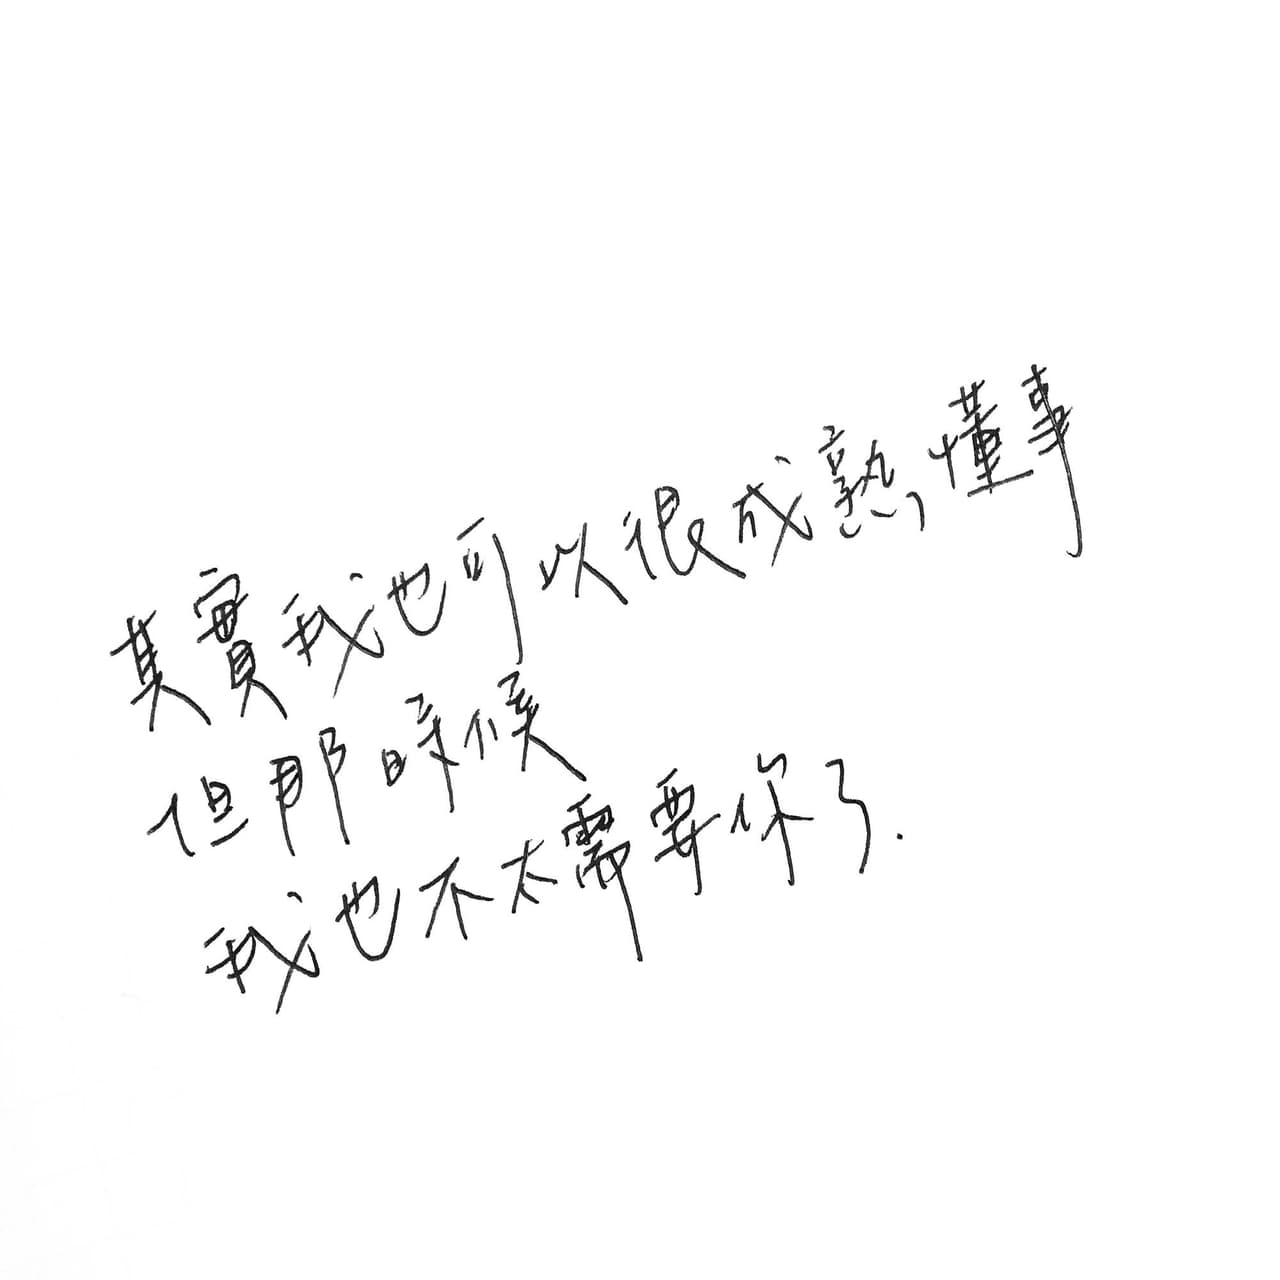 其實我也可以很成熟,懂事
但那時候
我也不太需要你了.